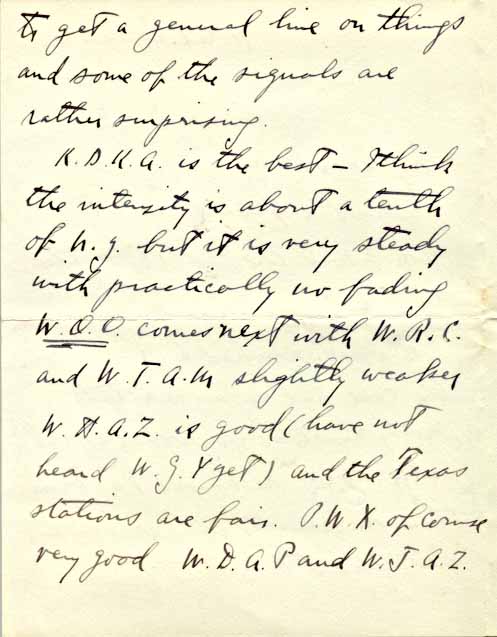 to get a general line on things
and some of the signals are
rather surprising.
K. D. K. A. is the best – I think
the intensity is about a tenth
of N. Y. but it is very steady
with practically no fading
W. O. O. comes next with W. R. C.
and W. T. A. M slightly weaker
W. H. A. Z. is good (have not
heard W. G. Y yet) and the Texas
stations are fair. P. W. X. of course
very good W. D. A. P and W. J. A. Z.